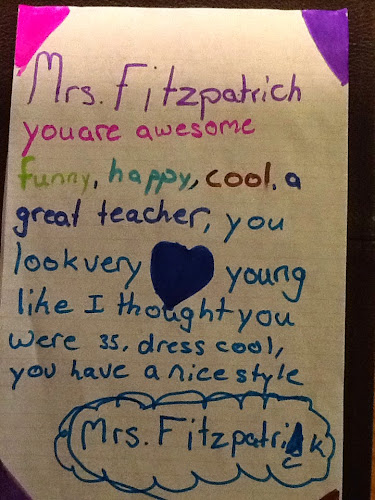 Mrs. Fitzpatrich
you are awesome
funny, happy, cool, a
great teacher, you
look very young
like I thought you
were 35, dress cool,
you have a nice style
Mrs. Fitzpatrick